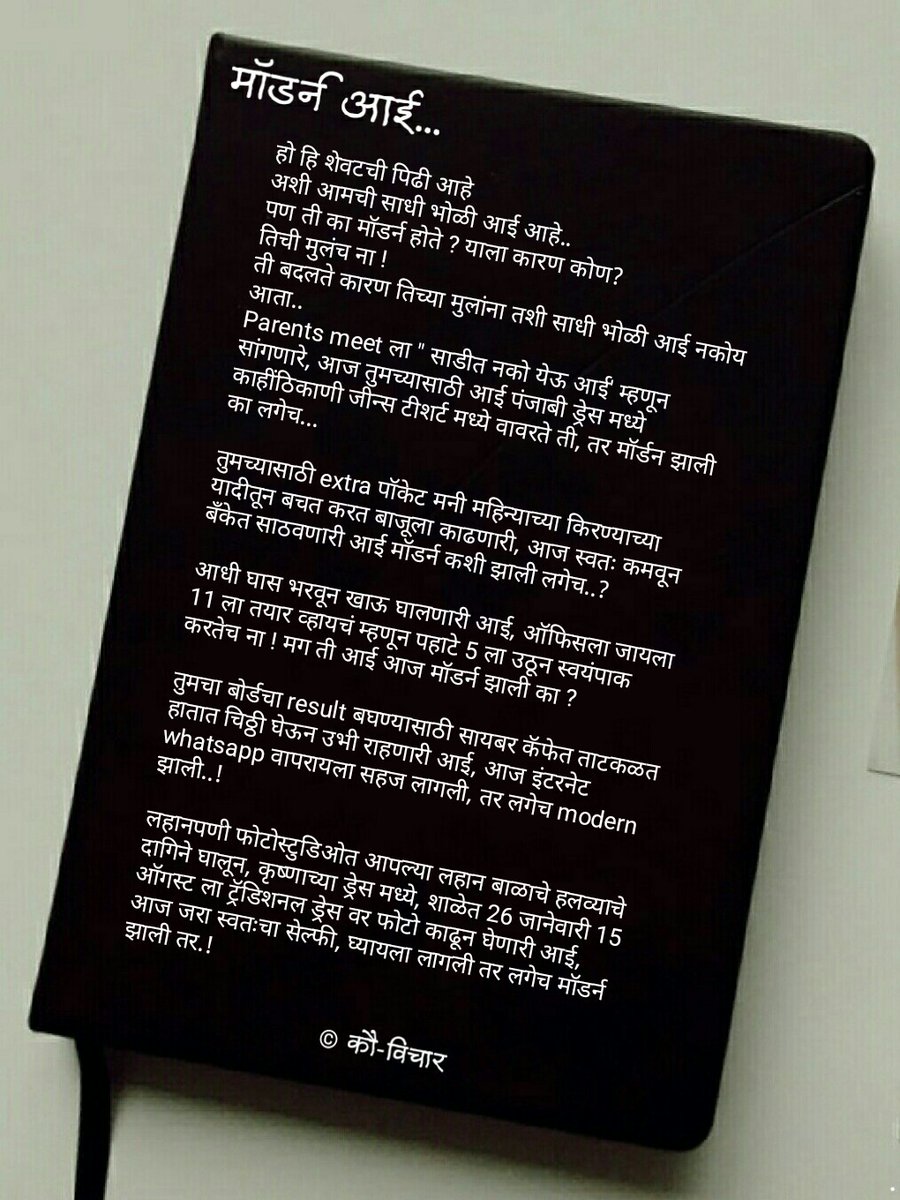 मॉडर्न आई...
हो हि शेवटची पिढी आहे
अशी आमची साधी भोळी आई आहे..
पण ती का मॉडर्न होते ? याला कारण कोण?
तिची मुलंच ना !
ती बदलते कारण तिच्या मुलांना तशी साधी भोळी आई नकोय
आता..
Parents meet ला " साडीत नको येऊ आई' म्हणून
सांगणारे, आज तुमच्यासाठी आई पंजाबी ड्रेस मध्ये
काहींठिकाणी जीन्स टीशर्ट मध्ये वावरते ती, तर मॉर्डन झाली
का लगेच...
तुमच्यासाठी extra पॉकेट मनी महिन्याच्या किरण्याच्या
यादीतून बचत करत बाजूला काढणारी, आज स्वतः कमवून
बँकेत साठवणारी आई मॉडर्न कशी झाली लगेच..?
आधी घास भरवून खाऊ घालणारी आई, ऑफिसला जायला
11 ला तयार व्हायचं म्हणून पहाटे 5 ला उठून स्वयंपाक
करतेच ना ! मग ती आई आज मॉडर्न झाली का ?
तुमचा बोर्डचा result बघण्यासाठी सायबर कॅफेत ताटकळत
हातात चिठ्ठी घेऊन उभी राहणारी आई, आज इंटरनेट
whatsapp वापरायला सहज लागली, तर लगेच modern
झाली..!
लहानपणी फोटोस्टुडिओत आपल्या लहान बाळाचे हलव्याचे
दागिने घालून, कृष्णाच्या ड्रेस मध्ये, शाळेत 26 जानेवारी 15
ऑगस्ट ला ट्रॅडिशनल ड्रेस वर फोटो काढून घेणारी आई,
आज जरा स्वतःचा सेल्फी, घ्यायला लागली तर लगेच मॉडर्न
झाली तर.!
© कौ-विचार